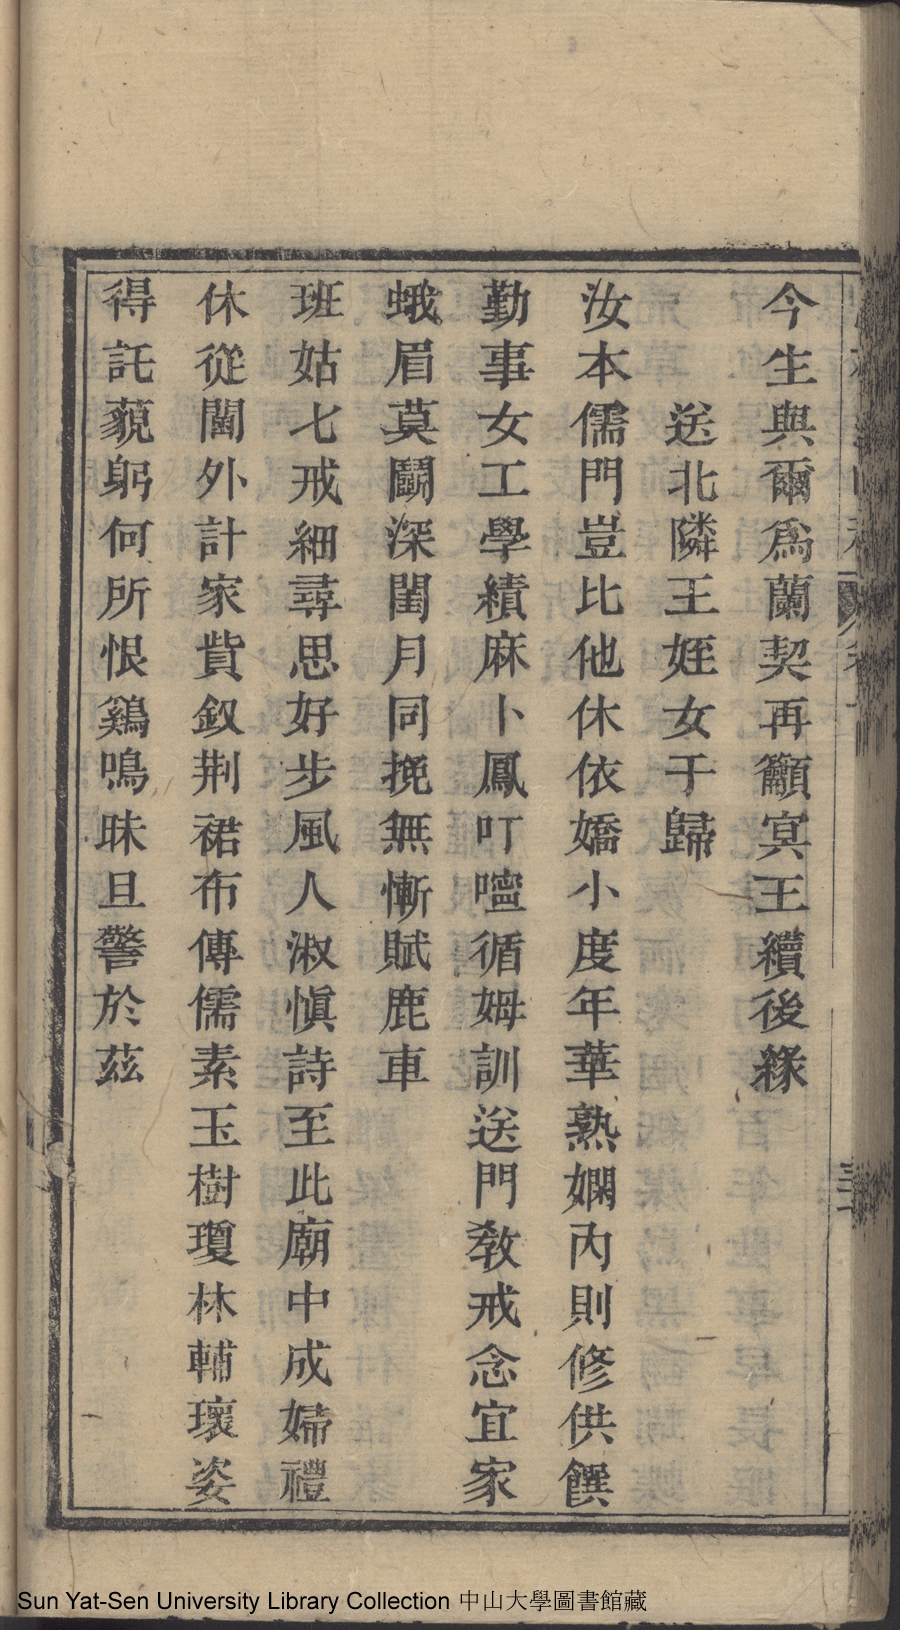 今生與爾爲蘭契再籲冥王續後緣
送北隣王姪女于歸
汝本儒門豈比他休依嬌小度年華熟嫻內則修供饌
勤事女工學績麻卜鳳叮嚀循姆訓送門敎戒念宜家
蛾眉莫鬭深閨月同挽無慚賦鹿車
班姑七戒細尋思好步風人淑愼詩至此廟中成婦禮
休從閫外計家貲釵荆裙布傳儒素玉樹瓊林輔瓌姿
得託藐躬何所恨鷄鳴昧旦警於茲
Sun Yat-Sen University Library Collection 中山大學圖書館藏